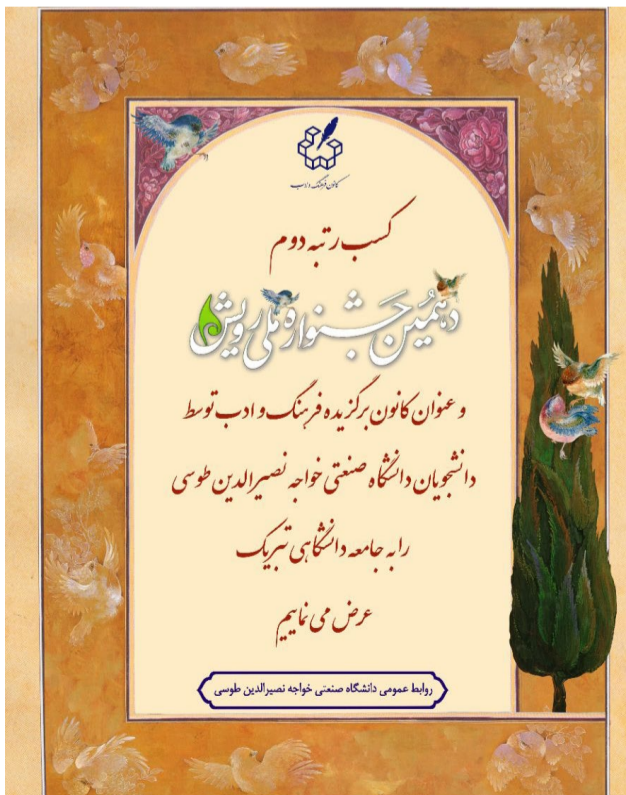 کانون فرهنگ و ادب
کسب رتبه دوم
دهمین جشنواره ملی رویش
و عنوان کانون برگزیده فرهنگ و ادب توسط
دانشجویان دانشگاه صنعتی خواجه نصیرالدین طوسی
را به جامعه دانشگاهی تبریک
عرض می نماییم
روابط عمومی دانشگاه صنعتی خواجه نصیرالدین طوسی